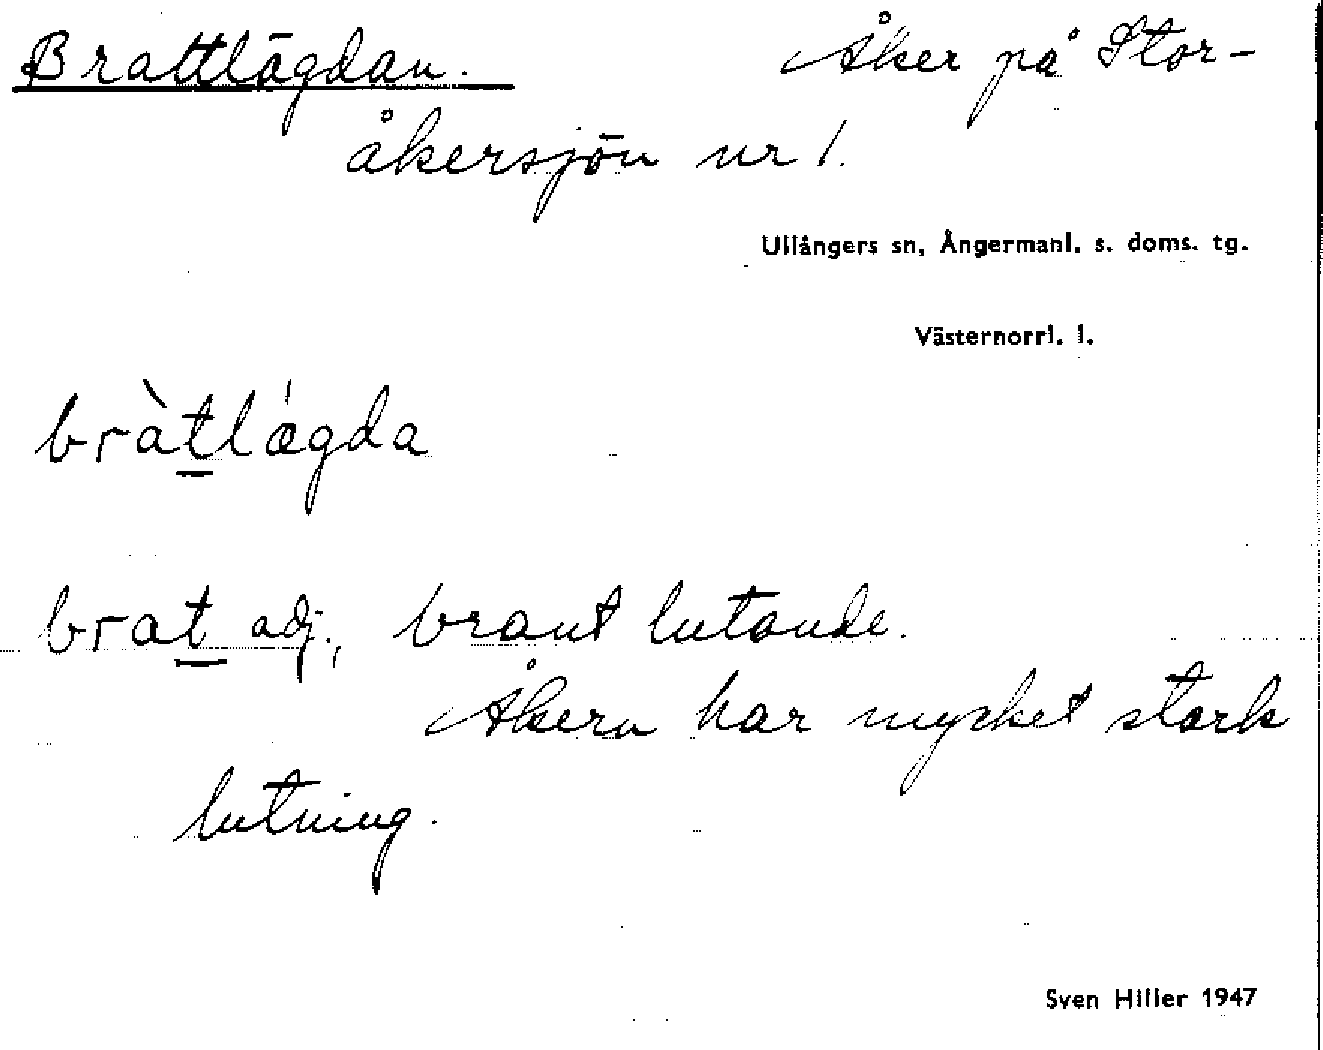 Brattlägdan. Åker på Stor-
åkersjön nr 1.
Ullångers sn, Ångermanl. s. doms. tg.
Västernorrl. l.
bràtlǽgda
brat adj., brant lutande.
Åkern har mycket stark
lutning.
Sven Hiller 1947